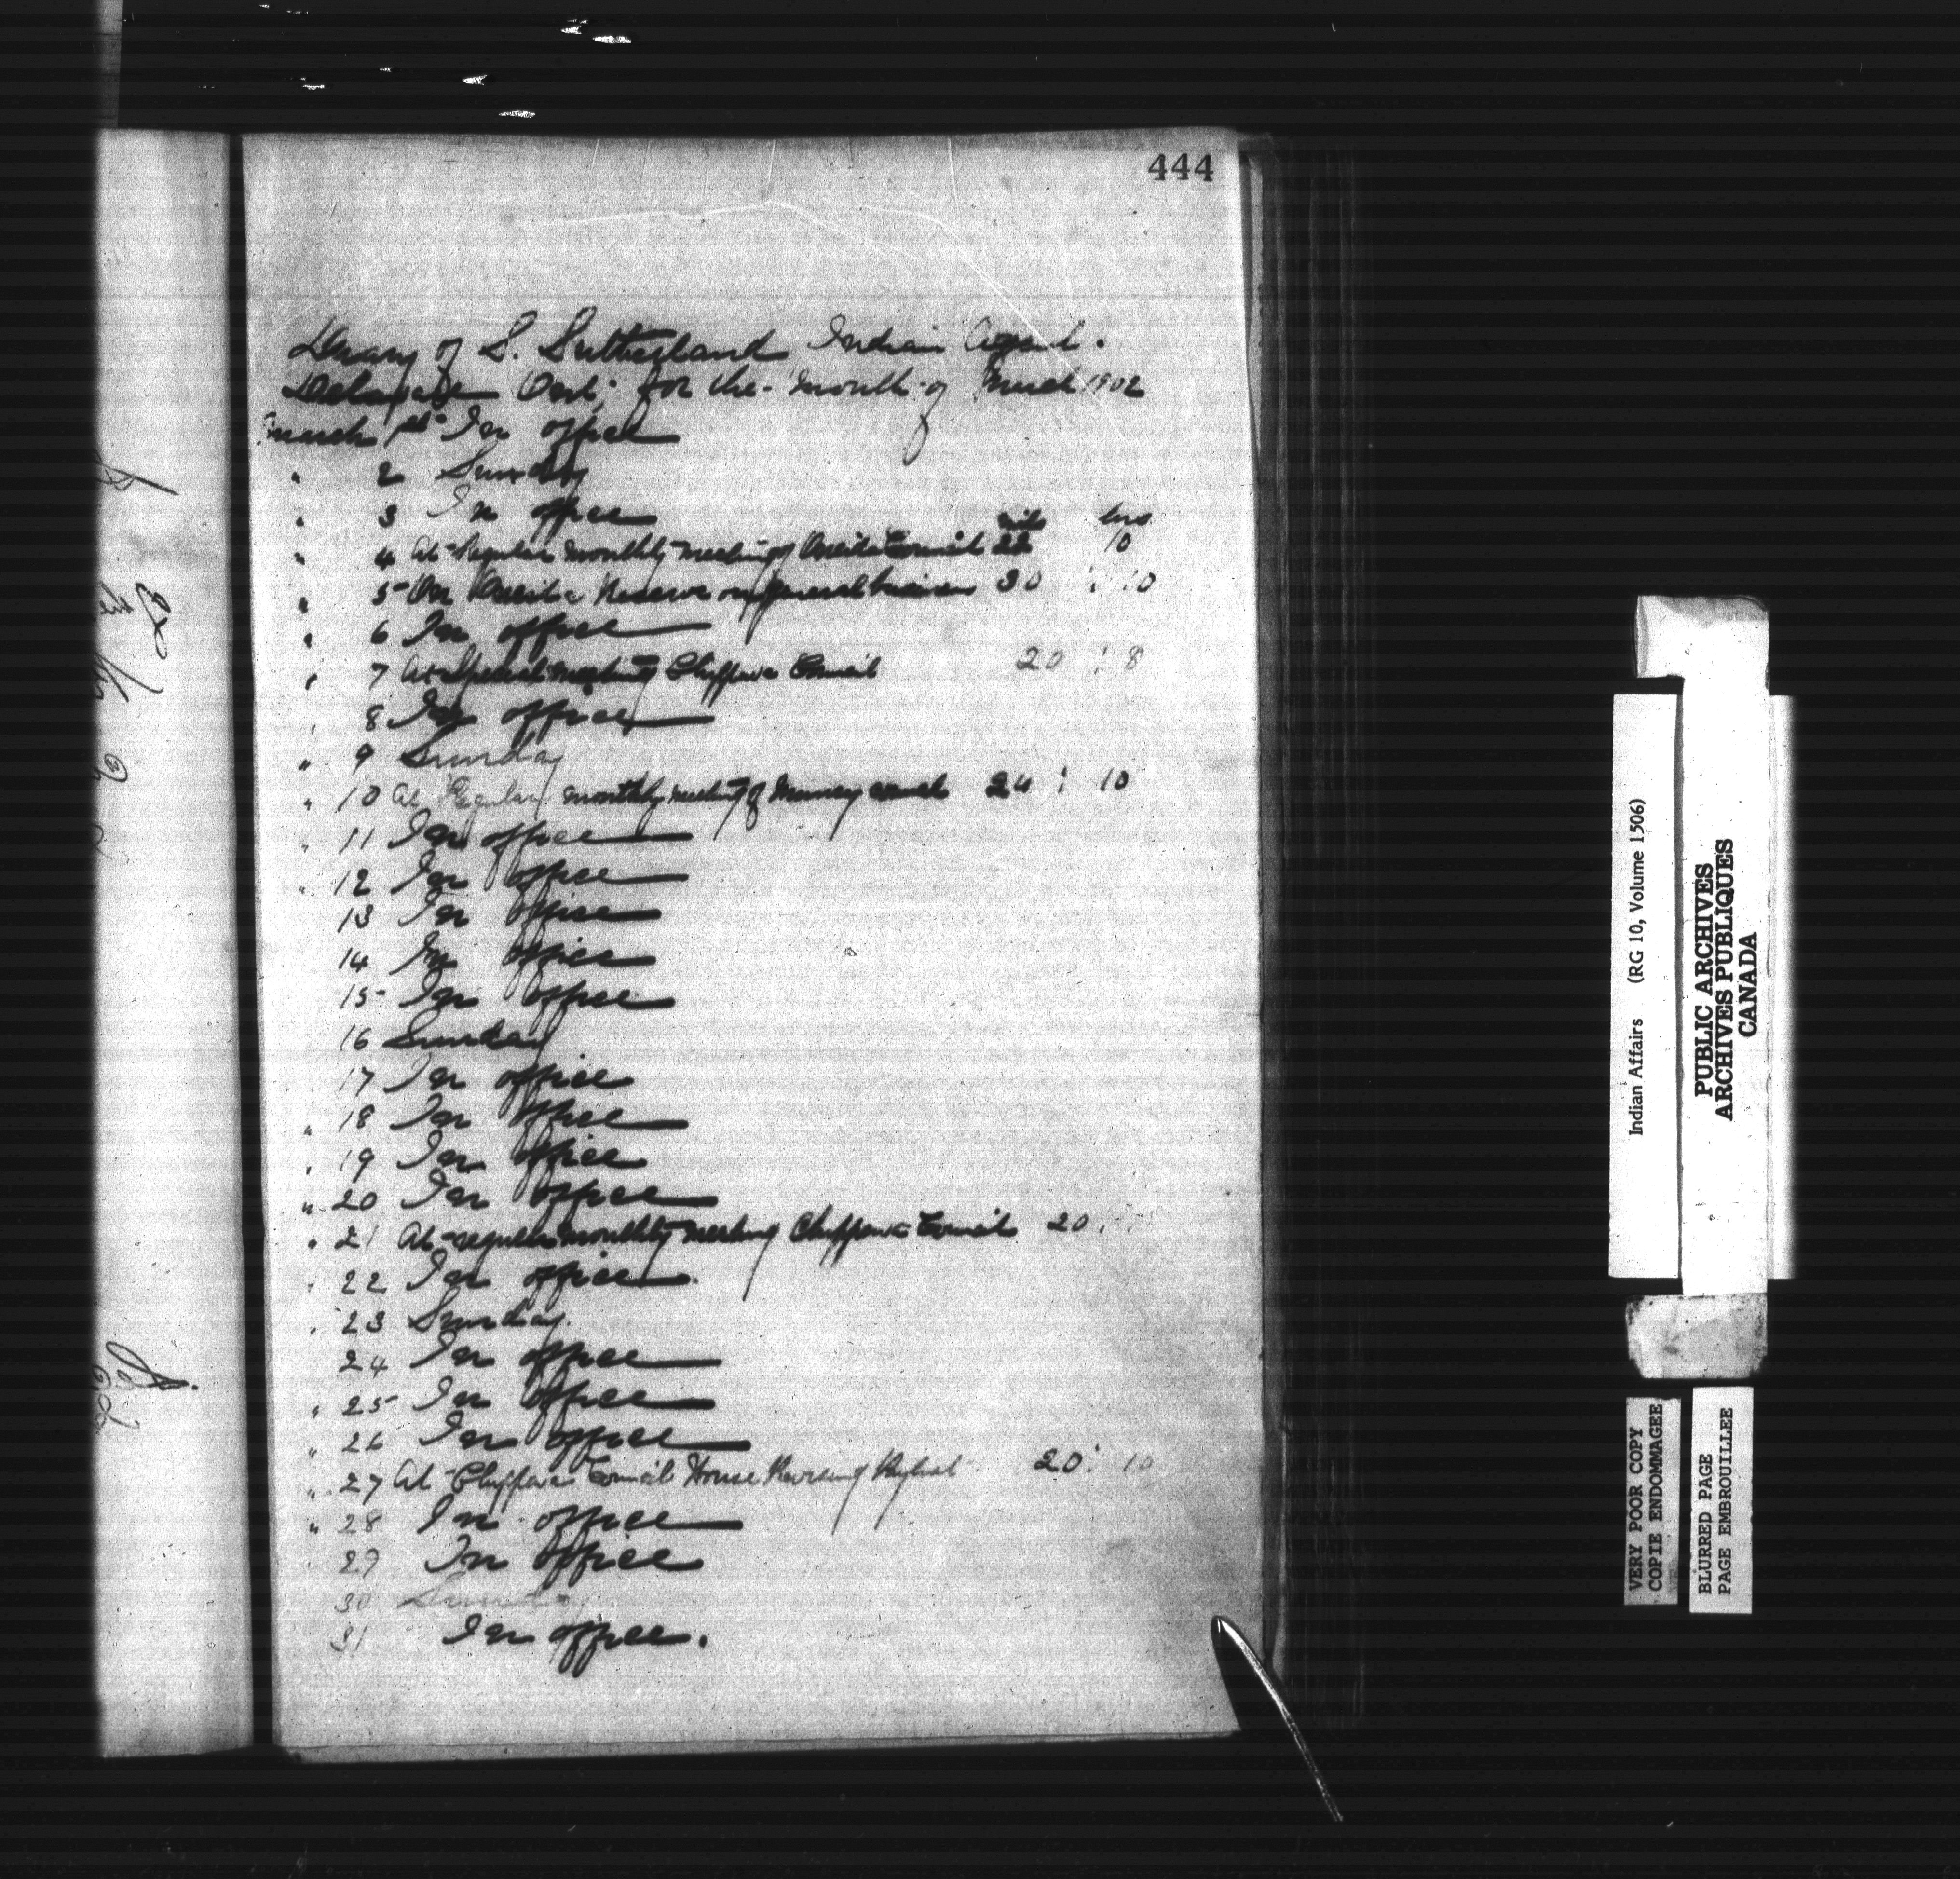 444
Diary of S. Sutherland Indian Agent.
Delaware Ont; for the month of March 1902
March 1st In office
" 2 Sunday
" 3 In office
mils hrs
" 4 At Regular monthly meeting of Oneida Council 22 10
" 5 On Oneida Reserve on general business 30 : 10
" 6 In office
" 7 At Special meeting Chippewa Council 20 : 8
" 8 In office
" 9 Sunday
" 10 At Regular monthly meeting of Muncey council 24 : 10
" 11 In office
" 12 In office
13 In office
14 In office
15 In office
16 Sunday
17 In office
" 18 In office
" 19 In office
" 20 In office
" 21 At regular monthly meeting Chippewa Council 20 :
" 22 In office
" 23 Sunday.
24 In office
" 25 In office
" 26 In office
" 27 At Chippewa Council House Revising 20 : 10
" 28 In office
29 In office
30 Sunday
31 In office.
Indian Affairs (RG 10, Volume 1506)
PUBLIC ARCHIVES
ARCHIVES PUBLIQUES
CANADA
VERY POOR COPY
COPIE ENDOMMAGEE
BLURRED PAGE
PAGE EMBROUILLEE